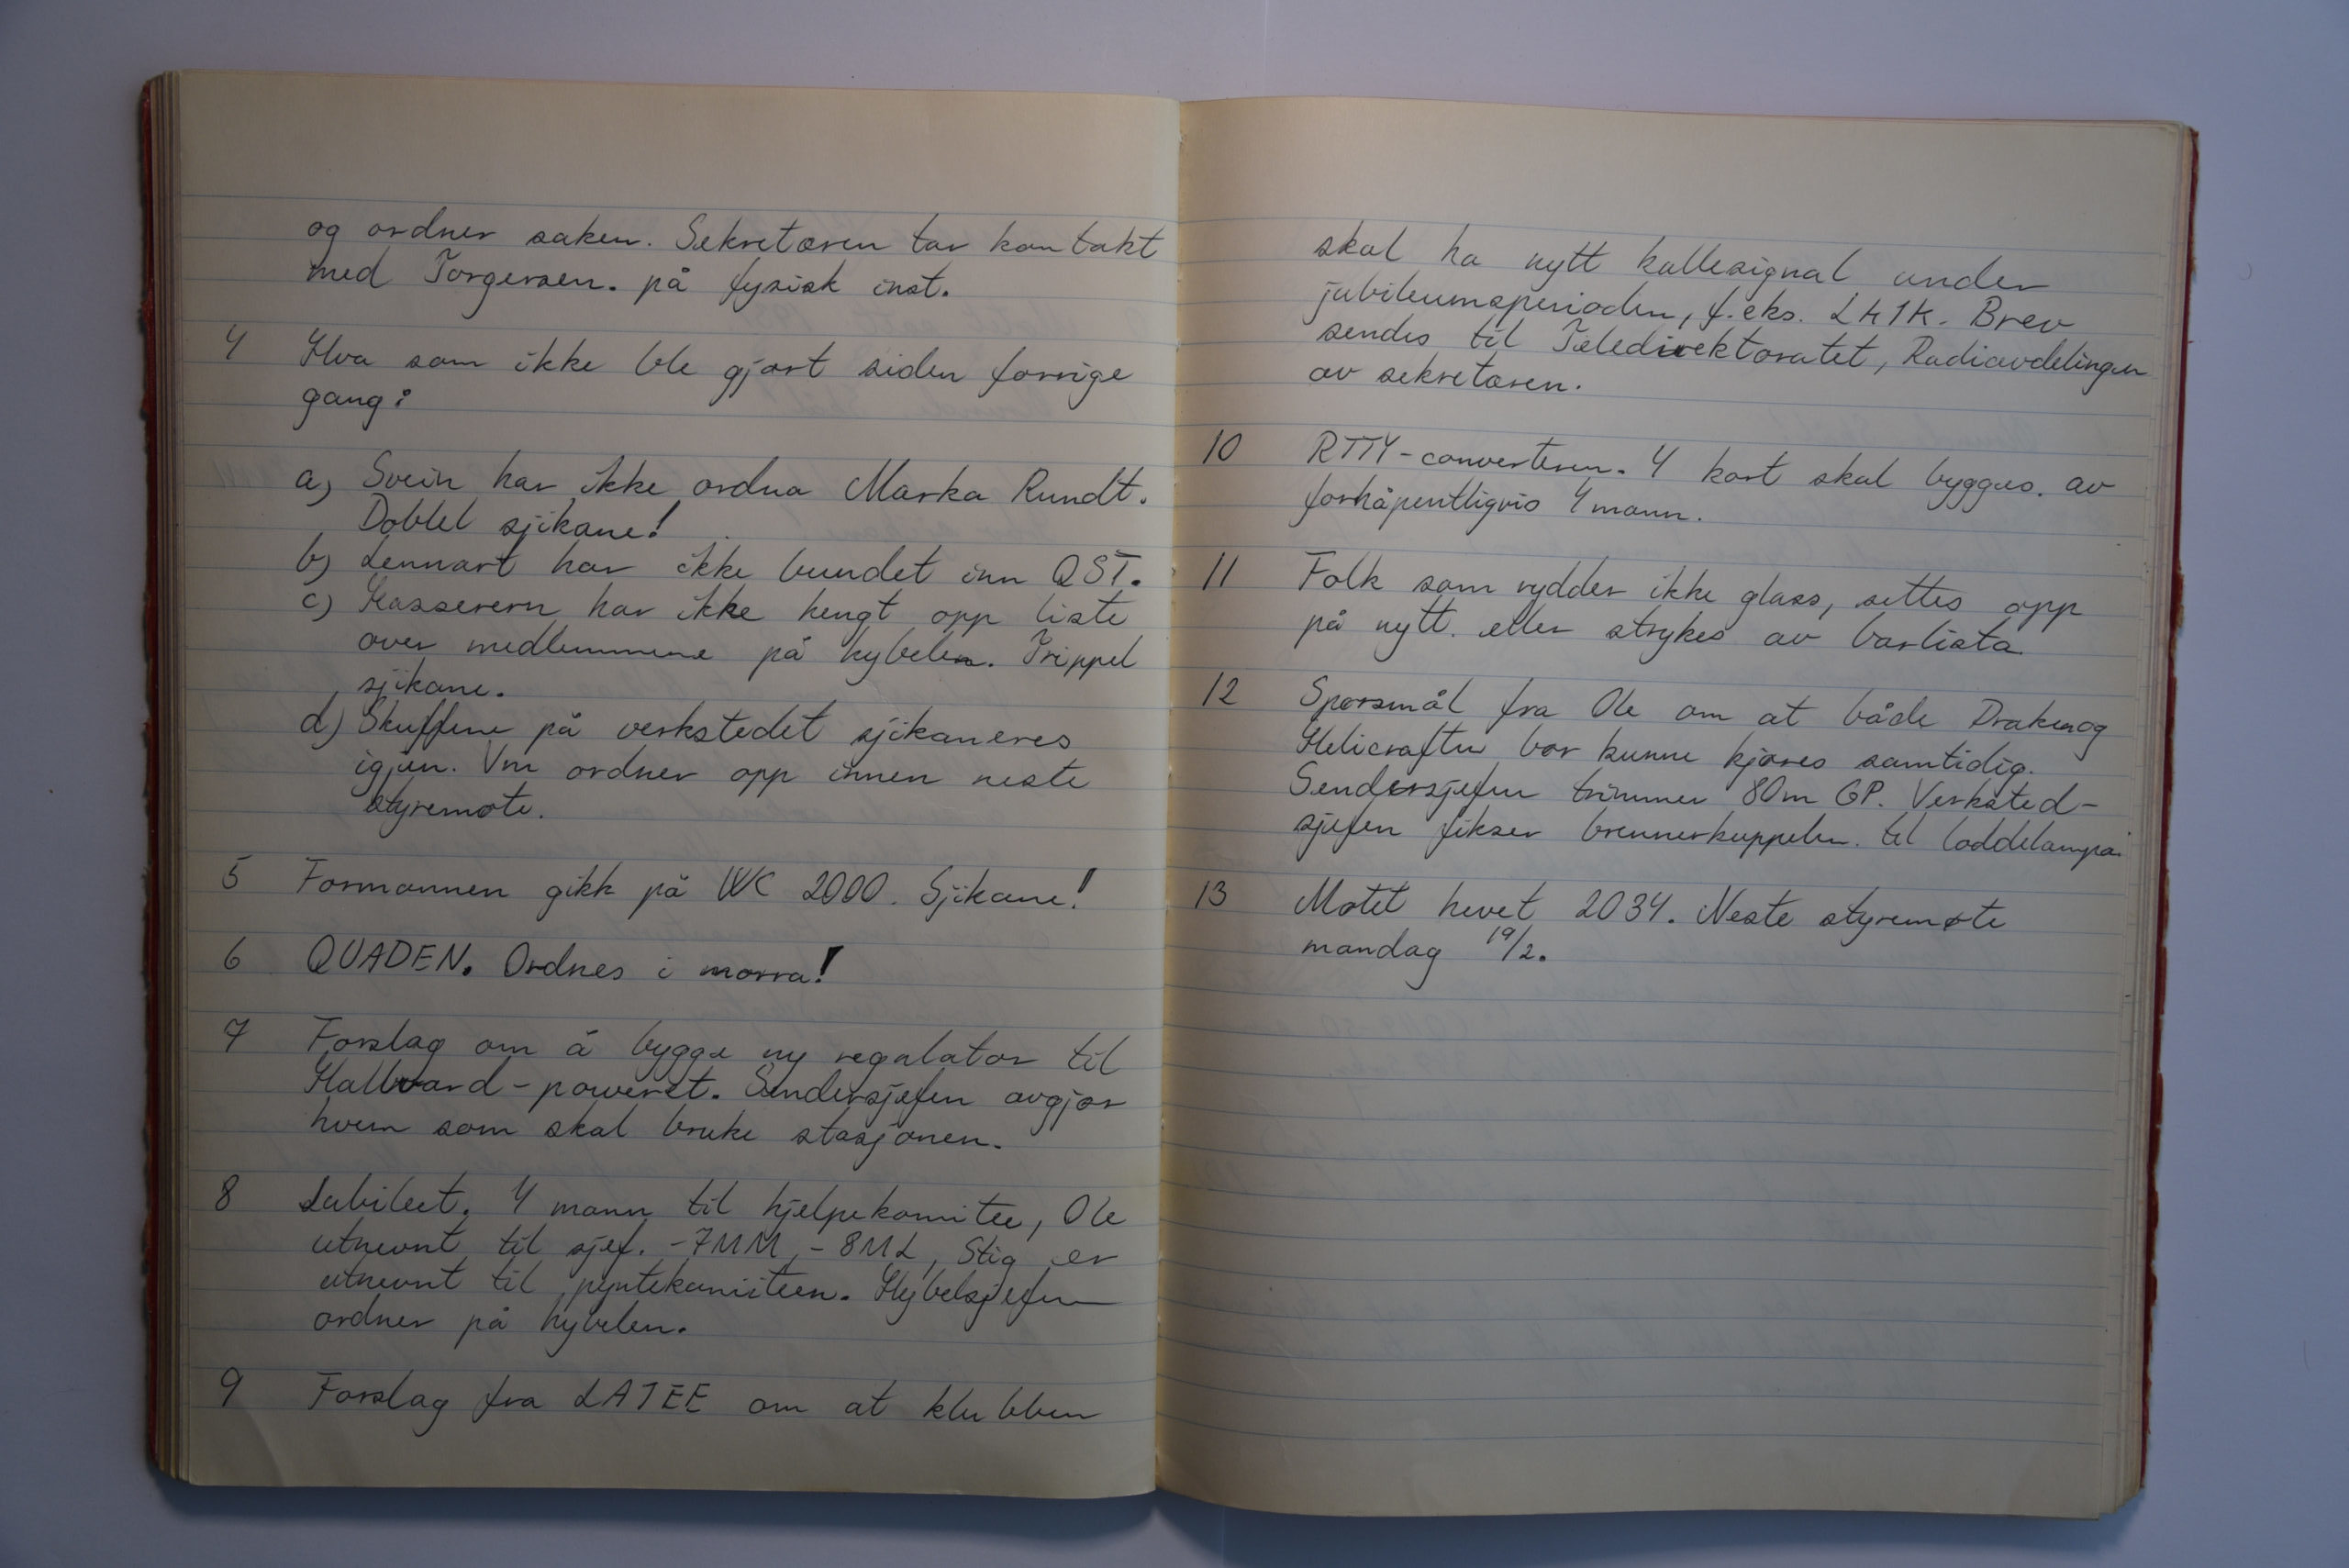 og ordner saken. Sekretæren tar kontakt
med Torgersen. på fysisk inst.
4 Hva som ikke ble gjort siden forrige
gang:
a) Svein har ikke ordna Marka Rundt.
Dobbel sjikane!
b) Lennart har ikke bundet inn QST.
c) Kassereren har ikke hengt opp liste
over medlemmene på hybelen. Trippel
sjikane.
d) Skuffene på verkstedet sjikaneres
igjen. Vm ordner opp innen neste
styremøte.
5 Formannen gikk på WC 2000. Sjikane!
6 QUADEN. Ordnes i morra!
7 Forslag om å bygge ny regulator til
Hallvard-poweret. Sendersjefen avgjør
hvem som skal bruke stasjonen.
8 Jubileet. 4 mann til hjelpekomitee, Ole
utnevnt til sjef. -7MM, -8ML, Stig er
utnevnt til pyntekomiteen. Hybelsjefen
ordner på hybelen.
9 Forslag fra LA7EE om at klubben
skal ha nytt kallesignal under
jubileumsperioden, f.eks. LH1K. Brev
sendes til Teledirektoratet, Radioavdelingen
av sekretæren.
10 RTTY-converteren. 4 kort skal bygges. av
forhåpentligvis 4 mann.
11 Folk som rydder ikke glass, settes opp
på nytt. eller strykes av barlista
12 Spørsmål fra Ole om at både Draken og
Helicraften bør kunne kjøres samtidig.
Sendersjefen trimmer 80m GP. Verksted-
sjefen fikser brennerkuppelen. til loddelampa.
13 Møtet hevet 2034. Neste styremøte
mandag 19/2.